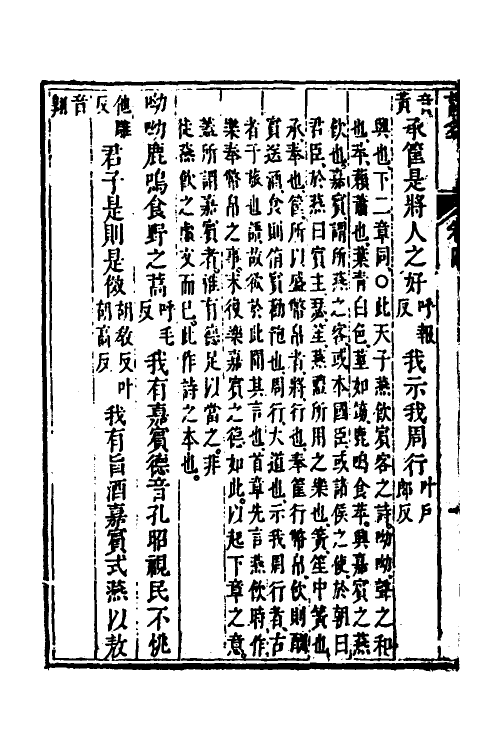 音黃承筐是將人之好叶報反我示我周行叶戶郎反
興也下二章同○此天子燕飲賓客之詩呦呦聲之和
也苹藾蕭也葉青白色莖如鹿鳴食苹興嘉賓之燕
飲也嘉賓謂所燕之客或本國臣或諸侯之使於朝曰
君臣於燕曰賓主瑟笙燕禮所用之樂也簧笙中簧也
承奉也筐所以盛幣帛者將行也奉筐行幣帛飲則酬
賓送酒食則侑賓勸飽也周行大道也示我周行者古
者于旅也語故欲於此聞其言也首章先言燕飲時作
樂奉幣帛之事末後樂嘉賓之德如此以起下章之意
蓋所謂嘉賓者惟有德足以當之非
徒燕飲之虛文而已此作詩之本也
呦呦鹿鳴食野之蒿叶毛反我有嘉賓德音孔昭視民不恌
他雕反君子是則是傚胡教反叶胡高反我有旨酒嘉賓式燕以敖
音翱